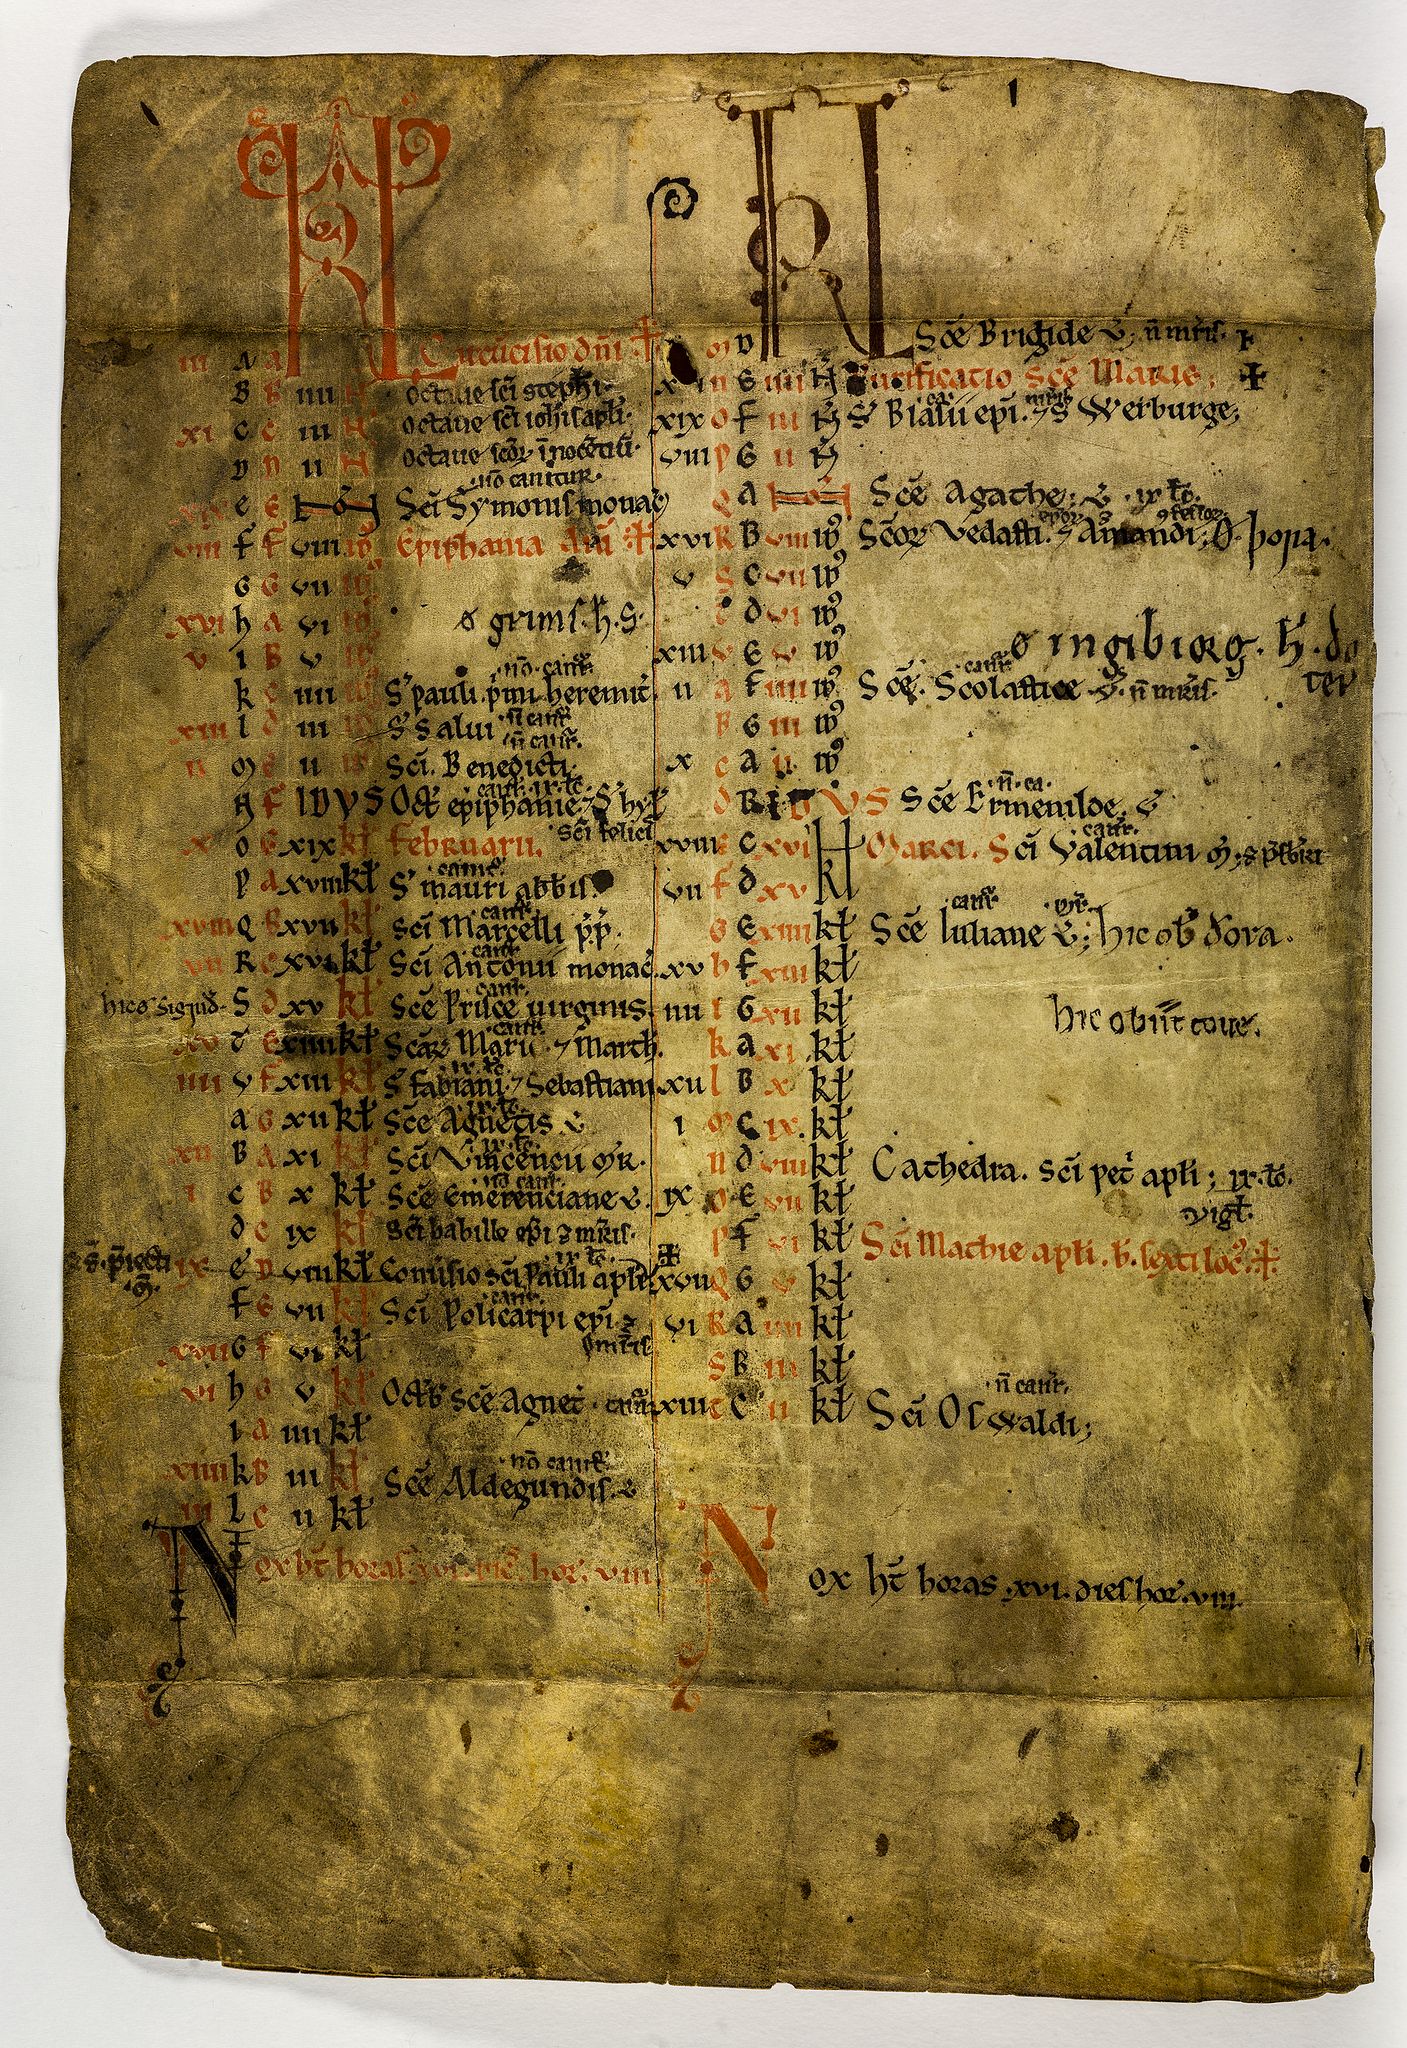 KL
iii A a Circu̅cisio dn̅i
B B iiii N Octaue sc̅i steph̅i.
xi c c iii N Octaue sc̅i ioh̅is apl̅i.
D D ii N Octaue sc̅oꝝ i̅noce̅tiu̅.
no̅ canitur.
xix e E NoN Sc̅i Symonis monac̅
viii f f viii Id Epiphania dn̅i
G G vii Id
xvi h a vi Id ø grims. h. s.
v i B v Id
no̅ canr̅.
k c iiii Id S' pauli. p̅mi heremit̅.
xiii l d iii Id S' Salui n̅ canr̅
ii m e ii Id Sc̅i. Benedicti. n̅ canr̅.
N F IDVS Oct̅ epiphanie
x O G xix kł februarii. Sc̅i felicis
P A xviii kł S' mauri abb̅is. canr̅
xviii Q B xvii kł Sc̅i Marcelli p̅p̅. canr̅
vii R c xvi kł Sc̅i Antonii monac̅. canr̅
hic o' sigrid S d xv kł Sc̅e Prisce uirginis. canr̅.
xv T E xiiii kł Sc̅oꝝ Marii ⁊ Marth̅. canr̅.
iiii v f xiii kł S' fabiani ⁊ Sebastiani
a G xii kł Sc̅e Agnetis
xii B A xi kł Sc̅i Vincencii mr̅.
i c B x kł Sc̅e Emerenciane no̅ canr̅.
d c ix kł Sc̅i babille ep̅i ⁊ mr̅is.
S̅. p̅iecti m̅. ix e D viii kł Conu̅sio sc̅i Pauli apl̅i
f E vii kł Sc̅i Policarpi ep̅i ⁊ mr̅is canr̅.
xvii G f vi kł
vi h G v kł Oct̅ sc̅e Agnet̅. canr̅
i a iiii kł
xiiii k B iii kł Sc̅e Aldegundis. no̅ canr̅.
iii l c ii kł
Nox ht̅ horas. xvi. dies hor̅. viii.
KL
m D Sc̅e Brigide v̅. n̅ mr̅is.
n E iiii N Purificatio Sc̅e Marie;
xix O F iii N S' Blasii ep̅i. ⁊ S' Werburge;
viii P G ii N
Q A NoN Sc̅e Agathe; v̅. ix. lc̅.
xvi R B viii Id Sc̅oꝝ Vedasti. ⁊ Amandi; O̅. þora.
v S C vii Id
T d vi Id
xiii v E v Id ø ingibiorg. h̅. do
ter
ii a f iiii Id Sc̅e. Scolastice v̅. n̅ mr̅is. canr̅
B G iii Id
x c A ii Id
d B IdVS Sc̅e Ermenilde. v̅ n̅. ca.
xviii e C xvi kł Marci. Sc̅i Valentini m̅. ⁊ p̅sbr̅i canr̅.
vii f d xv kł
G E xiiii kł Sc̅e Iuliane v̅; hic ob' þora. canr̅
xv h f xiii kł
iiii i G xii kł hic obiit toue.
k A xi kł
xii l B x kł
i m C ix kł
n d viii kł Cathedra. sc̅i pet̅ apl̅i; ix. lc̅.
ix O E vii kł vigł.
P F vi kł Sc̅i Mathie apl̅i.
xvii Q G v kł
vi R A iiii kł
S B iii kł
xiiii t C ii kł Sc̅i Oswaldi; n̅ canr̅.
Nox ht̅ horas. xvi. dies hor̅. viii.